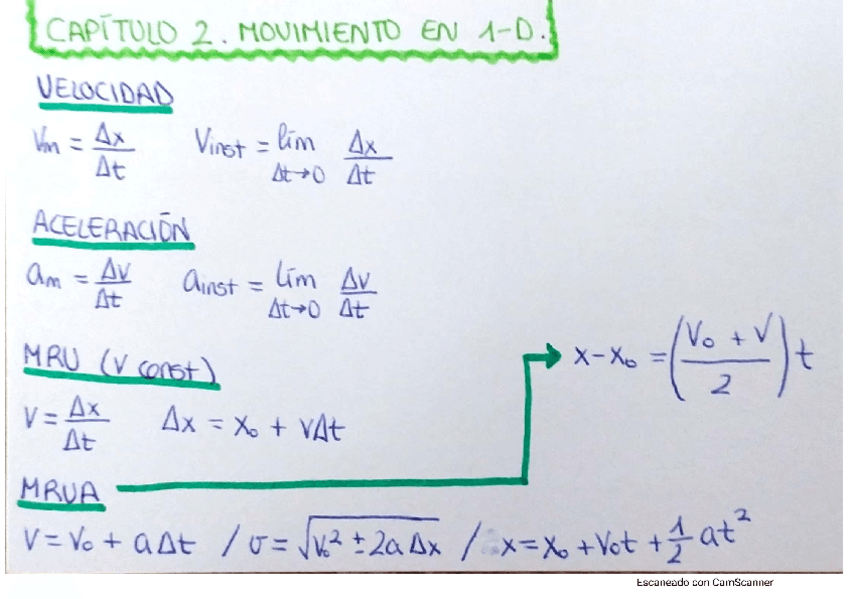 CAPÍTULO 2. MOVIMIENTO EN 1-D.
VELOCIDAD
Vm = Δx/Δt   Vinst = lím Δt→0 Δx/Δt
ACELERACIÓN
am = Δv/Δt   ainst = lím Δt→0 Δv/Δt
MRU (V const)
V = Δx/Δt   Δx = x₀ + vΔt
x-x₀ = (V₀ + V / 2) t
MRUA
V = V₀ + aΔt / v = √(v₀² ± 2aΔx) / x = x₀ + V₀t + 1/2 at²
Escaneado con CamScanner